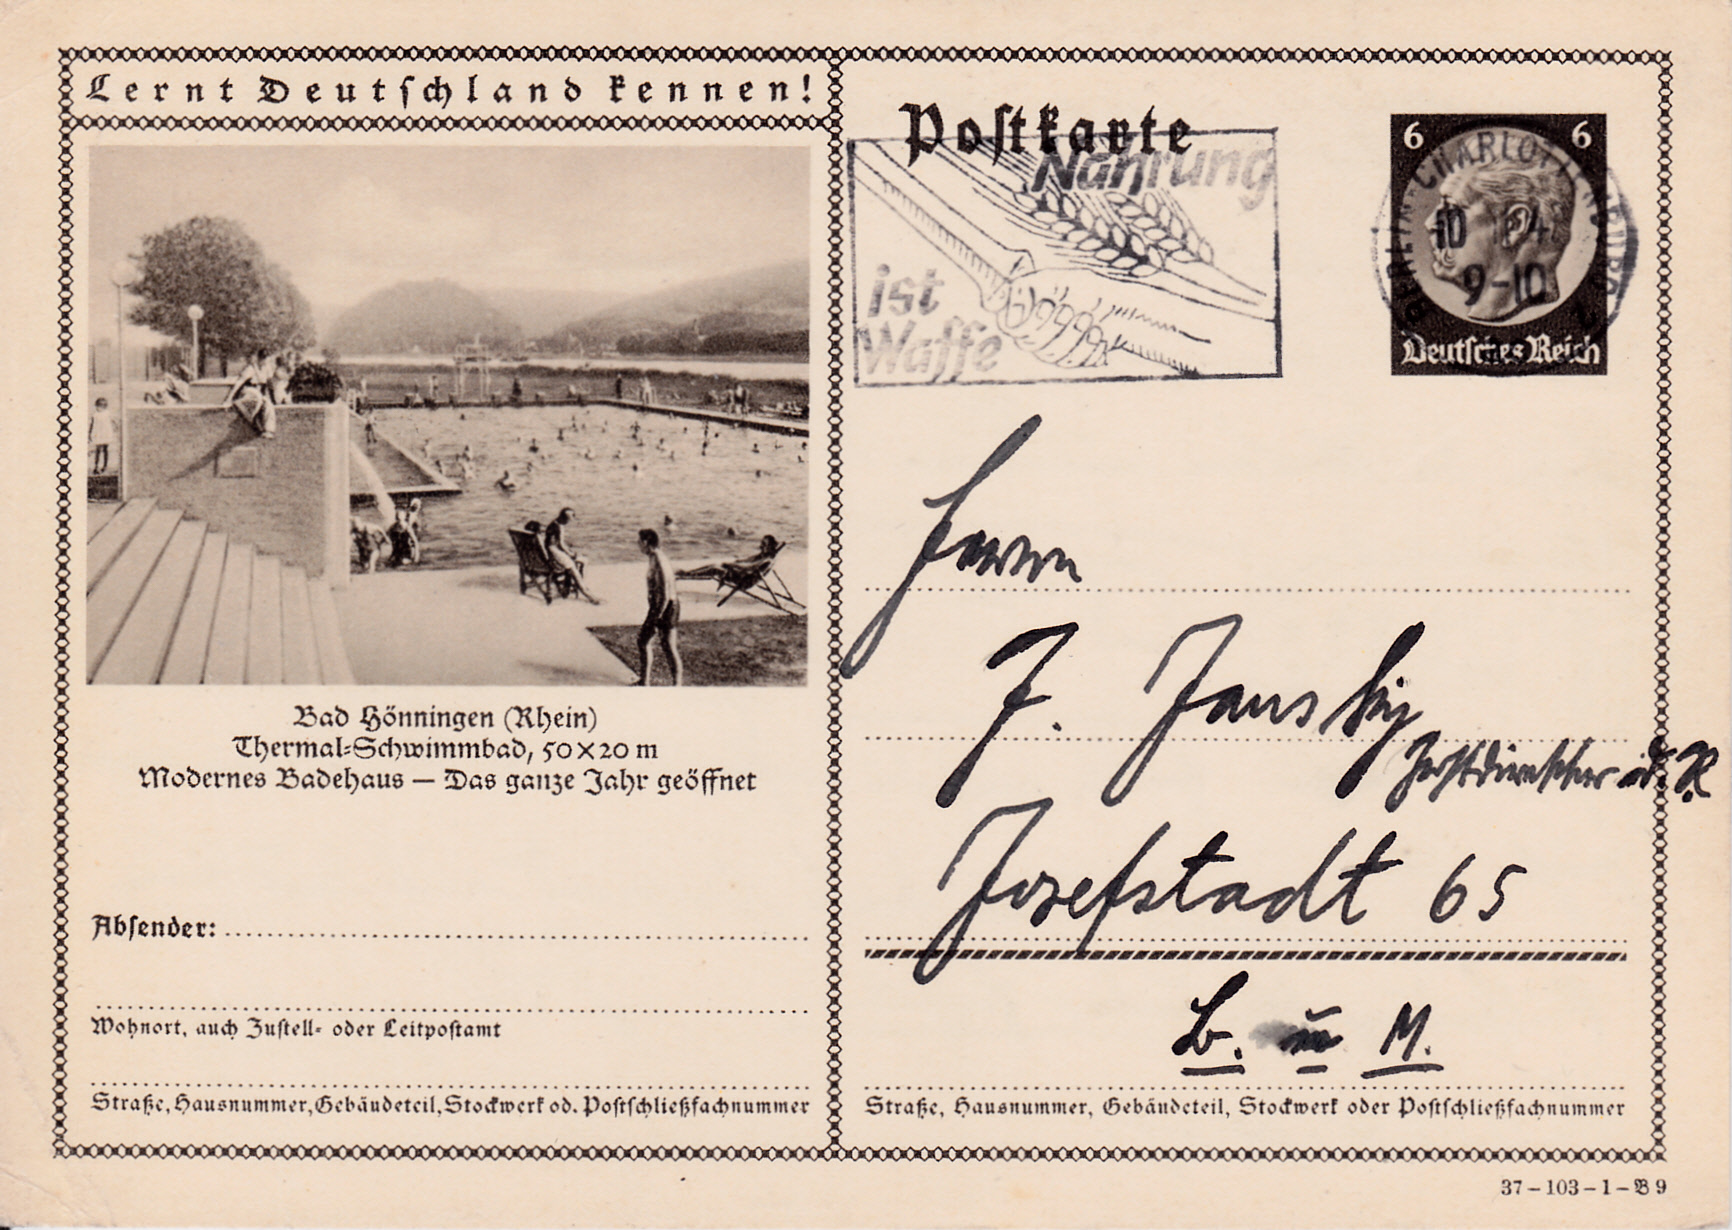 Lernt Deutschland kennen!
Bad Hönningen (Rhein)
Thermal-Schwimmbad, 50×20 m
Modernes Badehaus — Das ganze Jahr geöffnet
Absender:
Wohnort, auch Zustell- oder Leitpostamt
Straße, Hausnummer, Gebäudeteil, Stockwerk od. Postschließfachnummer
Postkarte
Nahrung
ist
Waffe
6 6
CHARLOTTENBURG
9-10
Deutsches Reich
Herrn
J. Jansky
Forstdirektor i.d. R.
Josefstadt 65
B. u M.
Straße, Hausnummer, Gebäudeteil, Stockwerk oder Postschließfachnummer
37 – 103 – 1 – B 9